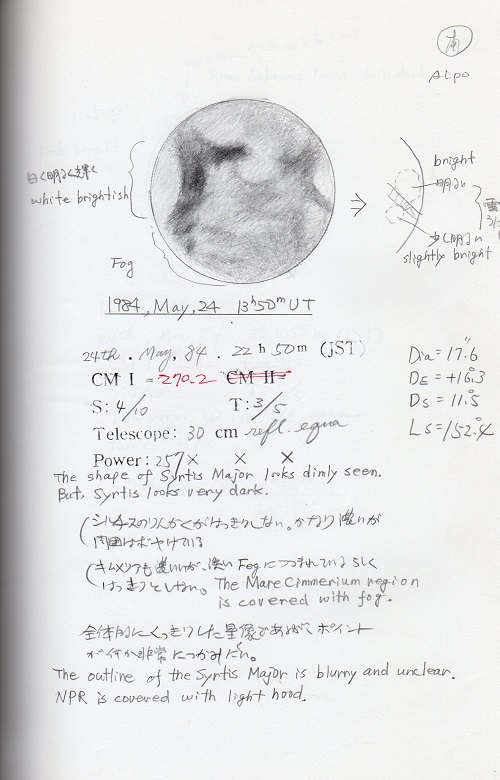 南
ALPO
bright
明るい
白く明るく輝く
white brightish
少く明るい
slightly bright
Fog
1984, May, 24 13h50m UT
24th. May, 84. 22h 50m (JST)
Dia = 17".6
CM I = 270.2 CM II =
DE = +16.°3
S: 4/10 T: 3/5
DS = 11.°5
Telescope: 30 cm refl. equa
LS = 152.°4
Power: 257× × ×
The shape of Syrtis Major looks dimly seen.
But, Syrtis looks very dark.
シルチスのりんかくがはっきりしない。かなり濃いが
周囲はボヤけている
キムメリアも濃いが、淡いFogにつつまれているらしく
はっきりとしない。 The Mare Cimmerium region
is covered with fog.
全体的にくっきりした星像であるが、ポイント
が何か非常につかみにくい。
The outline of the Syrtis Major is blurry and unclear.
NPR is covered with light hood.